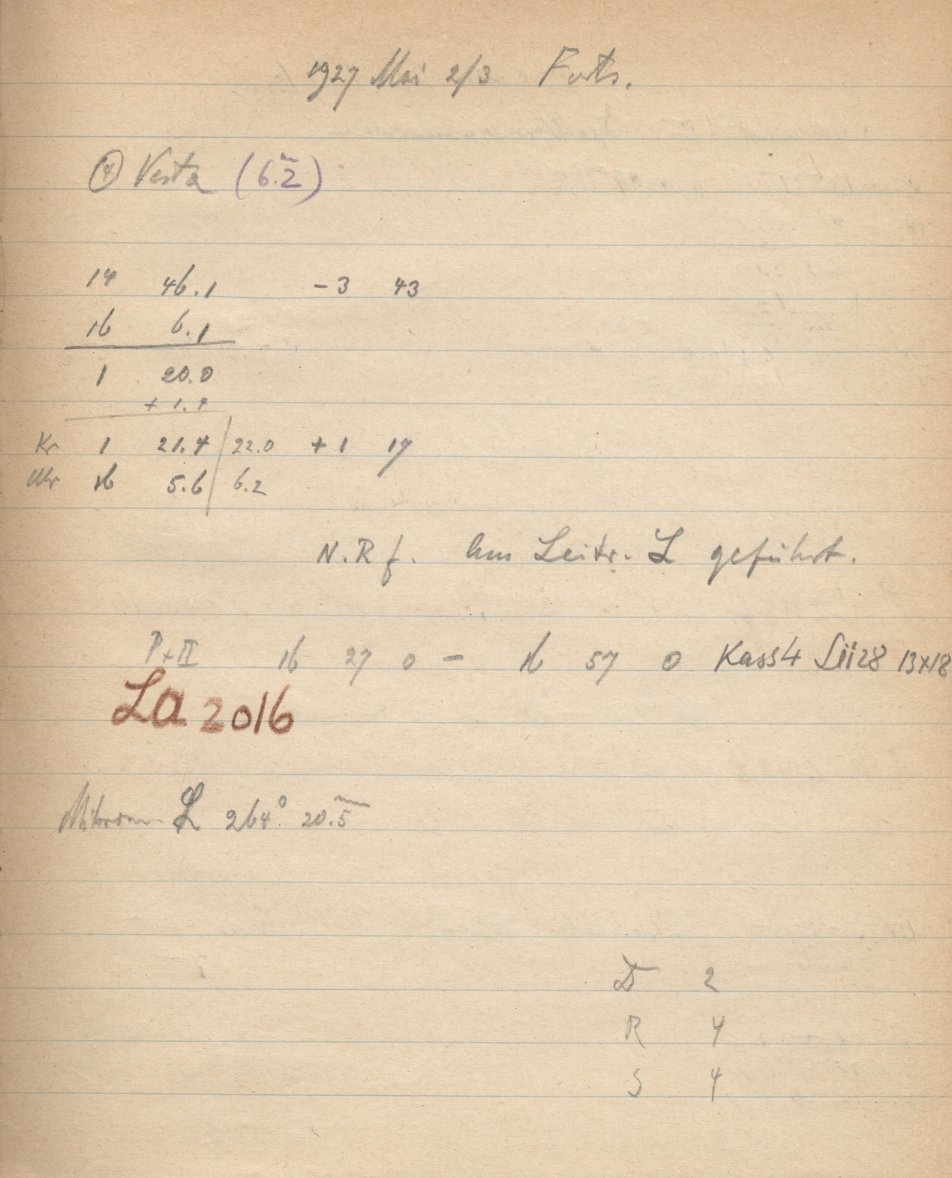 1927 Mai 2/3 Forts.
④ Vesta (6.ᵐ2)
14 46.1 -3 43
16 6.1
1 20.0
+ 1.4
Kr 1 21.4 22.0 +1 17
Uhr 16 5.6 6.2
N.R f. Am Leitr. L geführt.
P+II 16 27 0 - 16 57 0 Kass4 Lü28 13x18
La 2016
L 264° 20.5
D 2
R 4
S 4